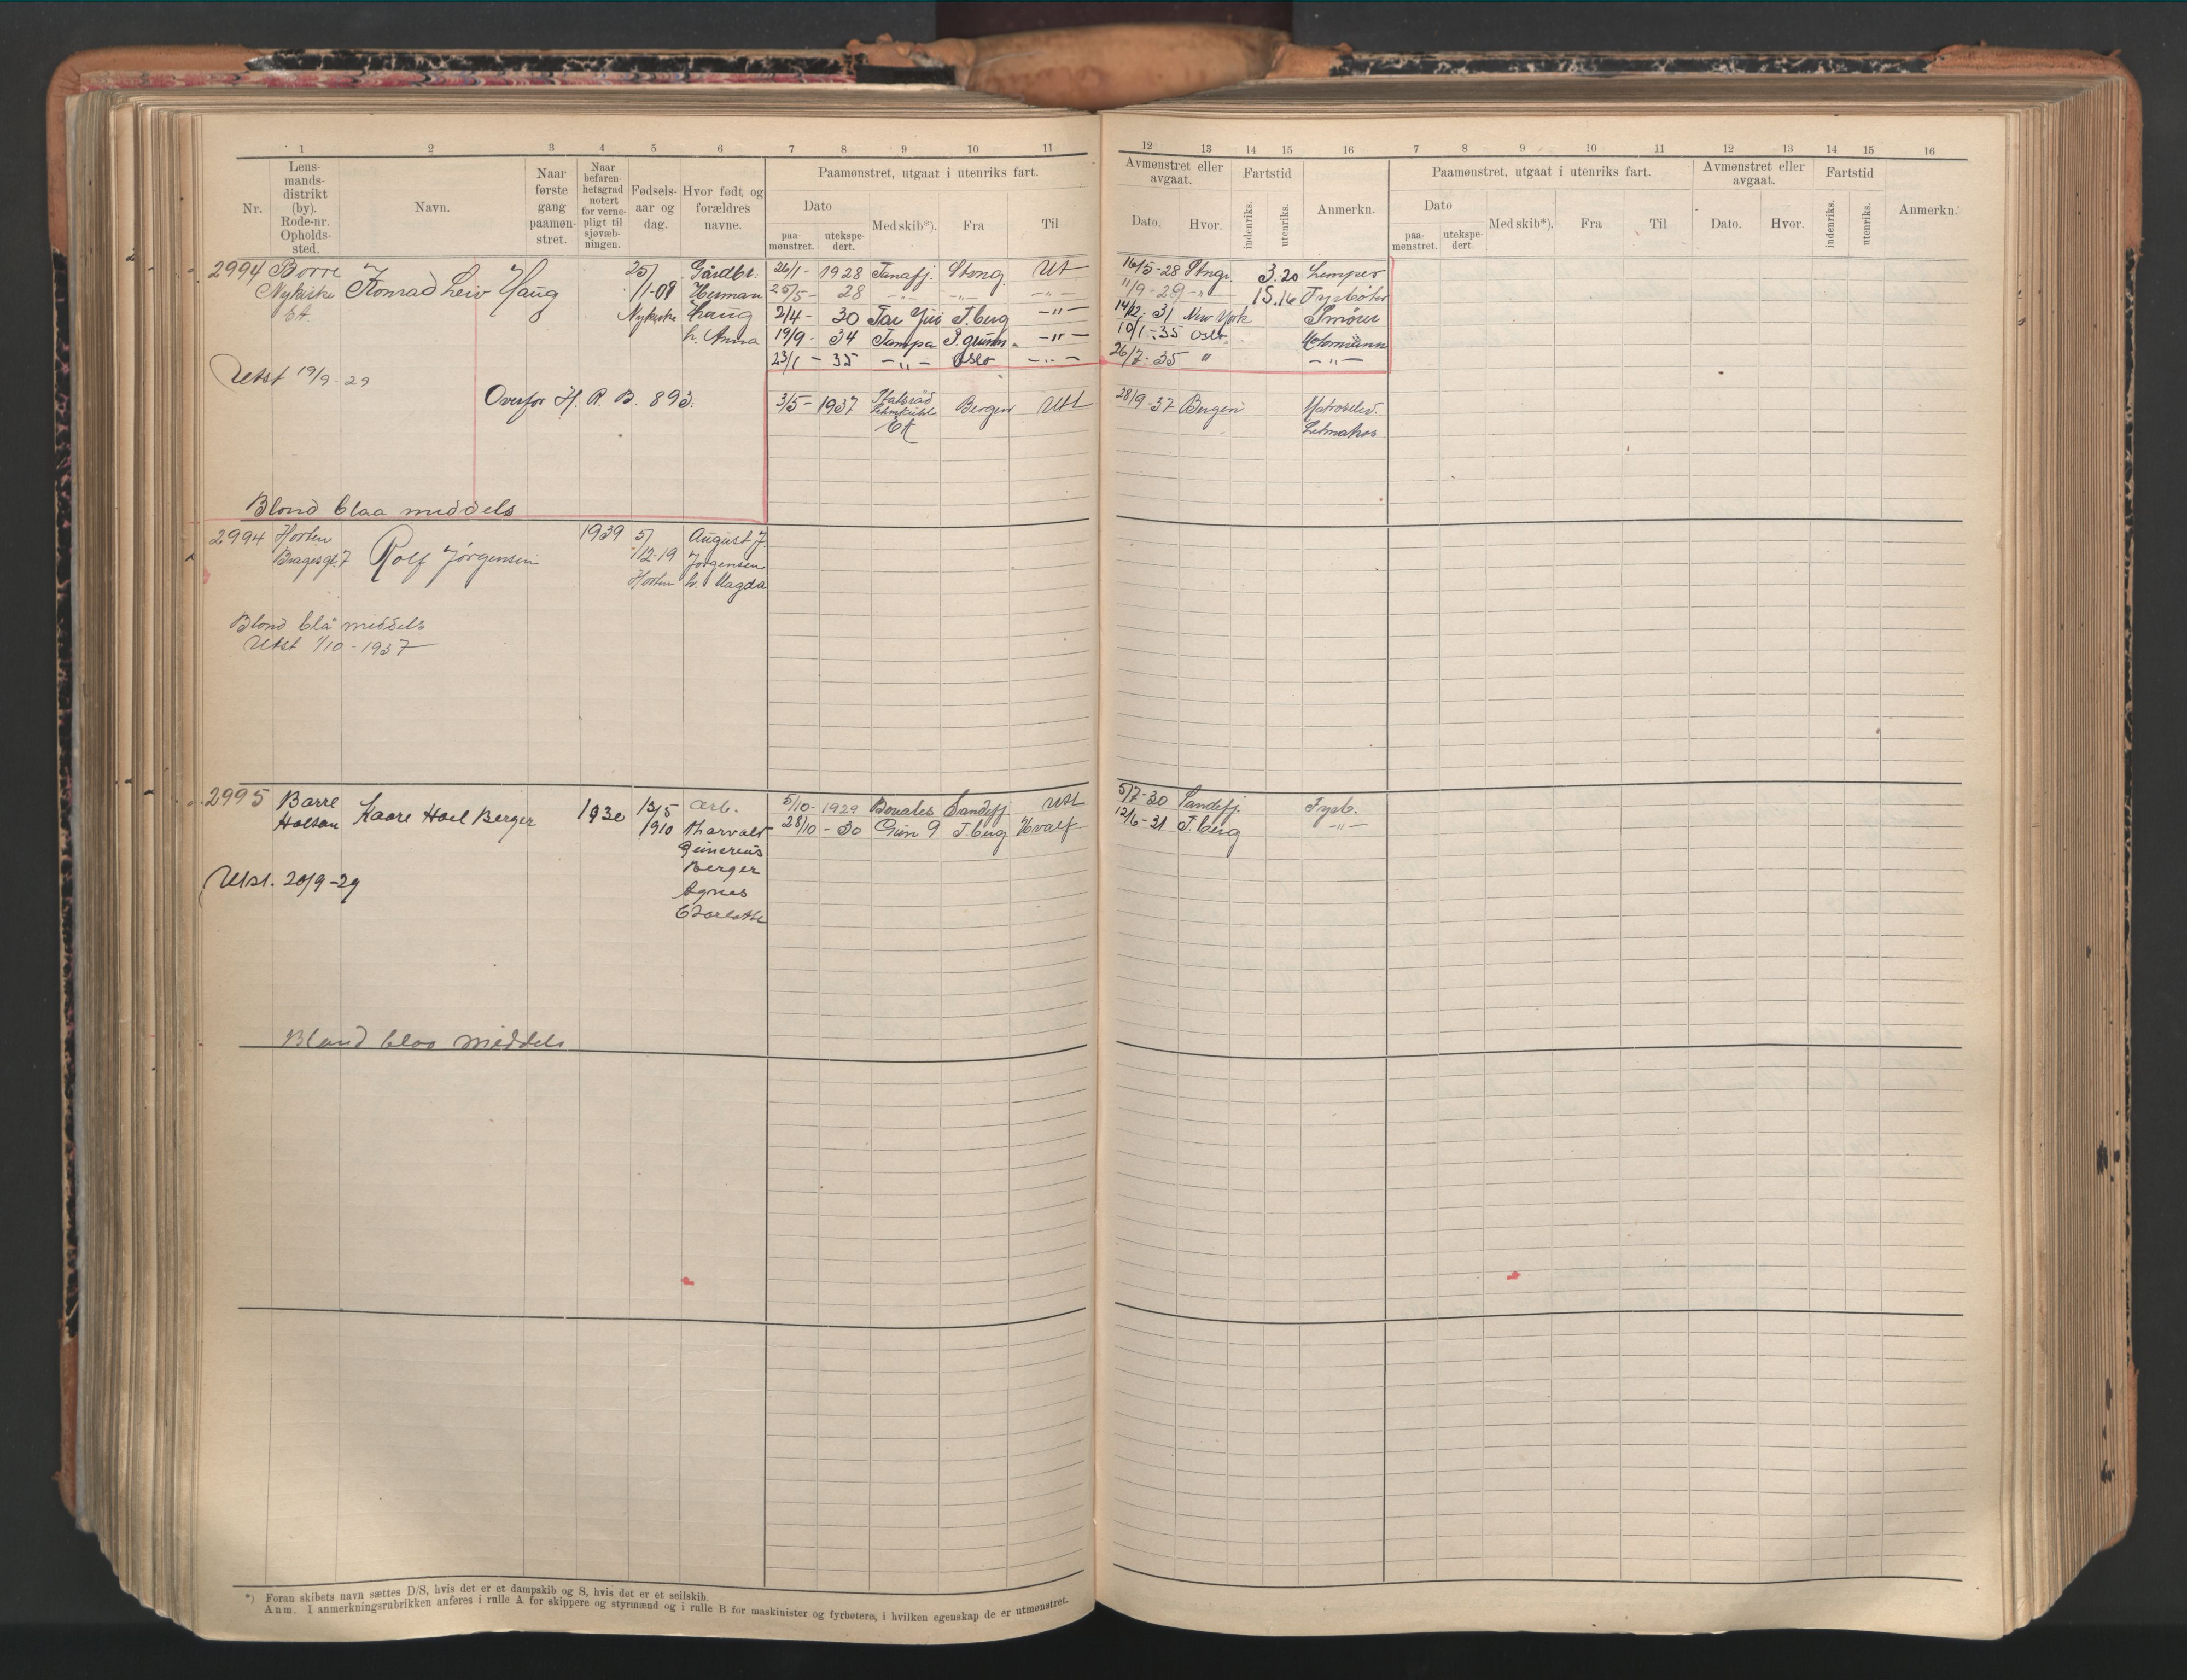 1 2 3 4 5 6 7 8 9 10 11
Nr. Lens-mands-distrikt (by). Rode-nr. Opholds-sted. Navn. Naar første gang paamøn-stret. Naar befaren-hetsgrad notert for verne-pligt til sjøvæb-ningen. Fødsels-aar og dag. Hvor født og forældres navne. Paamønstret, utgaat i utenriks fart.
Dato Med skib*). Fra Til
paa-mønstret. utekspe-dert.
2994 Borre 25/ Gårdbr. 26/1 - 1928 Tanafj. Stong. Ut
Nykirke Konrad Leiv Haug 1-09 Herman 25/5 - 28 -„- -„- -„-
Nykirke Haug 2/4 - 30 T.berg -„-
h. Anna 19/9 - 34 Tampa -„-
23/1 - 35 -„- Oslo -„-
Utst 19/9-29
Overfor H. R. B. 893. 3/5 - 1937 Statsråd Lehmkuhl Bergen Utl
Blond blaa middels
2994 Horten 1939 5/ August J.
Bragesgt. 7 Rolf Jørgensen 12-19 Jørgensen
Horten h. Magda
Blond blå middels
Utst 1/10-1937
2995 Borre 1930 13/5 arb. 5/10 - 1929 Sandefj. Utl
Kaare Hoel Berger 1910 Thorvald 28/10 - 30 Gun 9 T.berg Hvalf
Berger
Agnes
Charlotte
Utst. 20/9-29
Blond blaa middels
*) Foran skibets navn sættes D/S, hvis det er et dampskib og S, hvis det er et seilskib.
Anm. I anmerkningsrubrikken anføres i rulle A for skippere og styrmænd og i rulle B for maskinister og fyrbøtere, i hvilken egenskap de er utmønstret.
12 13 14 15 16 7 8 9 10 11 12 13 14 15 16
Avmønstret eller avgaat. Fartstid Anmerkn. Paamønstret, utgaat i utenriks fart. Avmønstret eller avgaat. Fartstid Anmerkn.
Dato. Hvor. indenriks. utenriks. Dato Med skib*). Fra Til Dato. Hvor. indenriks. utenriks.
paa-mønstret. utekspe-dert.
16/5-28 Stngr. 3.20 Lemper
11/9-29 -„- 15.16 Fyrbøter
14/12-31 New York Smører
10/1-35 Oslo. Motormann
26/7-35 „ -„-
28/9-37 Bergen
5/7-30 Sandefj. Fyrb.
12/6-31 T.berg -„-